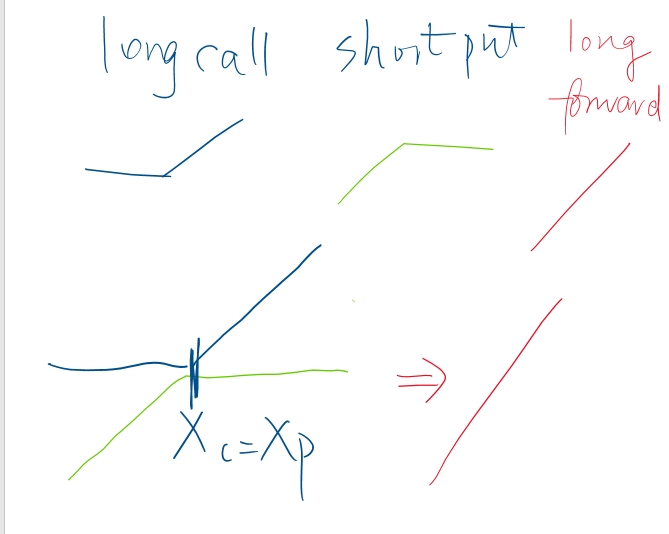 long call short put long
forward
⇒
X c = X p